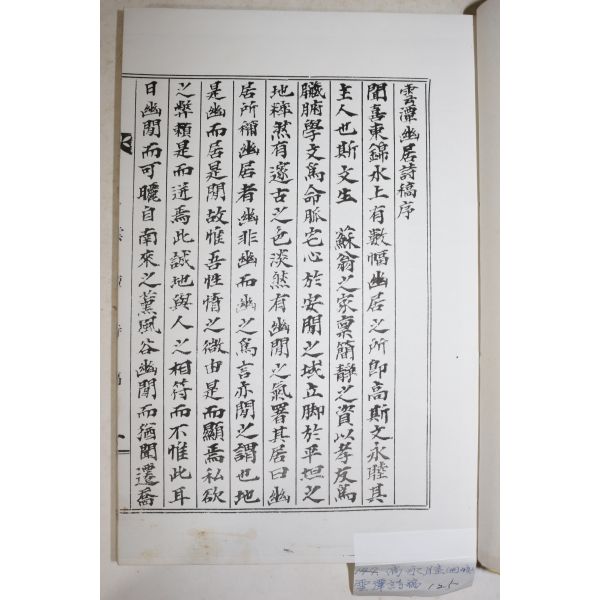 雲潭幽居詩稿序
聞喜東錦水上有數幅幽居之所即高斯文永睦其
主人也斯文生 蘇翁之家稟簡靜之資以孝友爲
臟腑學文爲命脈宅心於安閒之域立脚於平坦之
地粹然有邃古之色淡然有幽閒之氣署其居曰幽
居所稱幽居者幽非幽而幽之爲言亦閒之謂也地
是幽而居是閒故惟吾性情之微由是而顯焉私欲
之弊類是而逬焉此誠地與人之相符而不惟此耳
日幽閒而可曬自南來之薰風谷幽閒而猶聞遷喬
雲潭詩稿 125